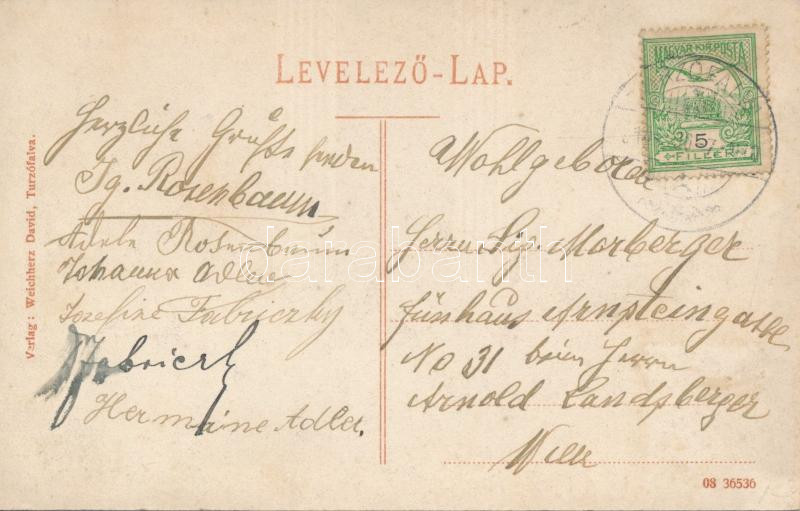 LEVELEZŐ-LAP.
Verlag: Weichherz David, Turzófalva.
Herzliche Grüße senden
Ig. Rosenbaum
Adele Rosenbaum
Johanna Adler
Josefine Fabriczky
Hermine Adler.
MAGYAR KIR. POSTA
5
FILLER
Wohlgeboren
Herrn Sig. Morberger
fünfhaus Arnsteingasse
No 31 beim Herrn
Arnold Landsberger
Wien
08 36536
darabanth